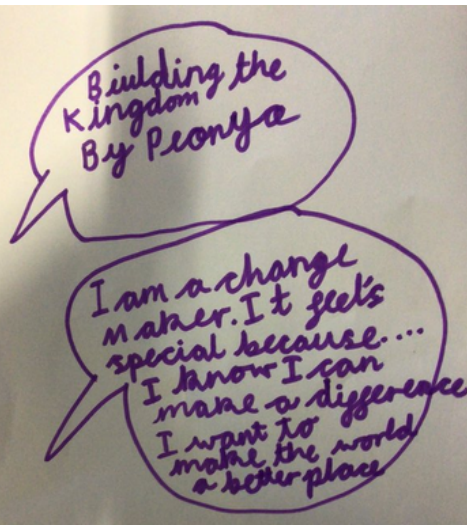 Biulding the
Kingdom
By Peonya
I am a change
maker. It feel's
special because....
I know I can
make a difference
I want to
make the world
a better place